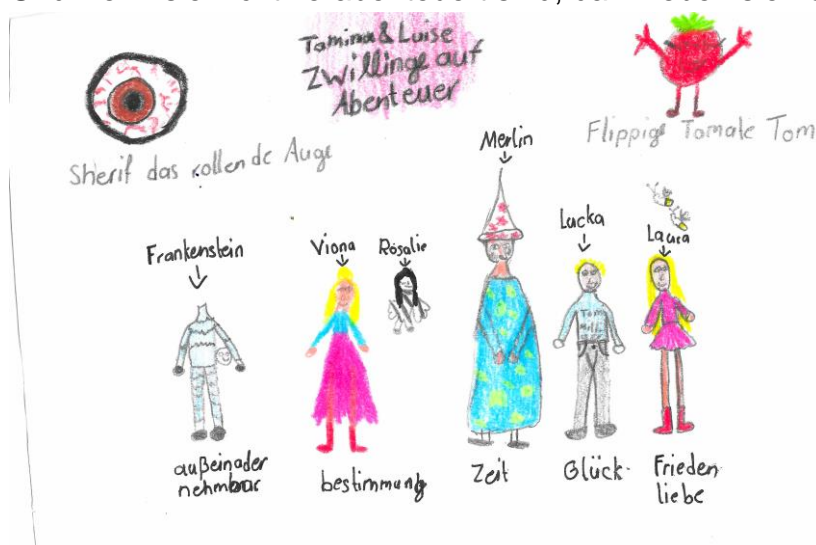 Tamina & Luise
Zwillinge auf
Abenteuer
Sherif das rollende Auge
Flippige Tomate Tom
Merlin
Frankenstein
Viona
Rosalie
Lucka
Laura
Tom
außeinader
nehmbar
bestimmung
Zeit
Glück
Frieden
liebe